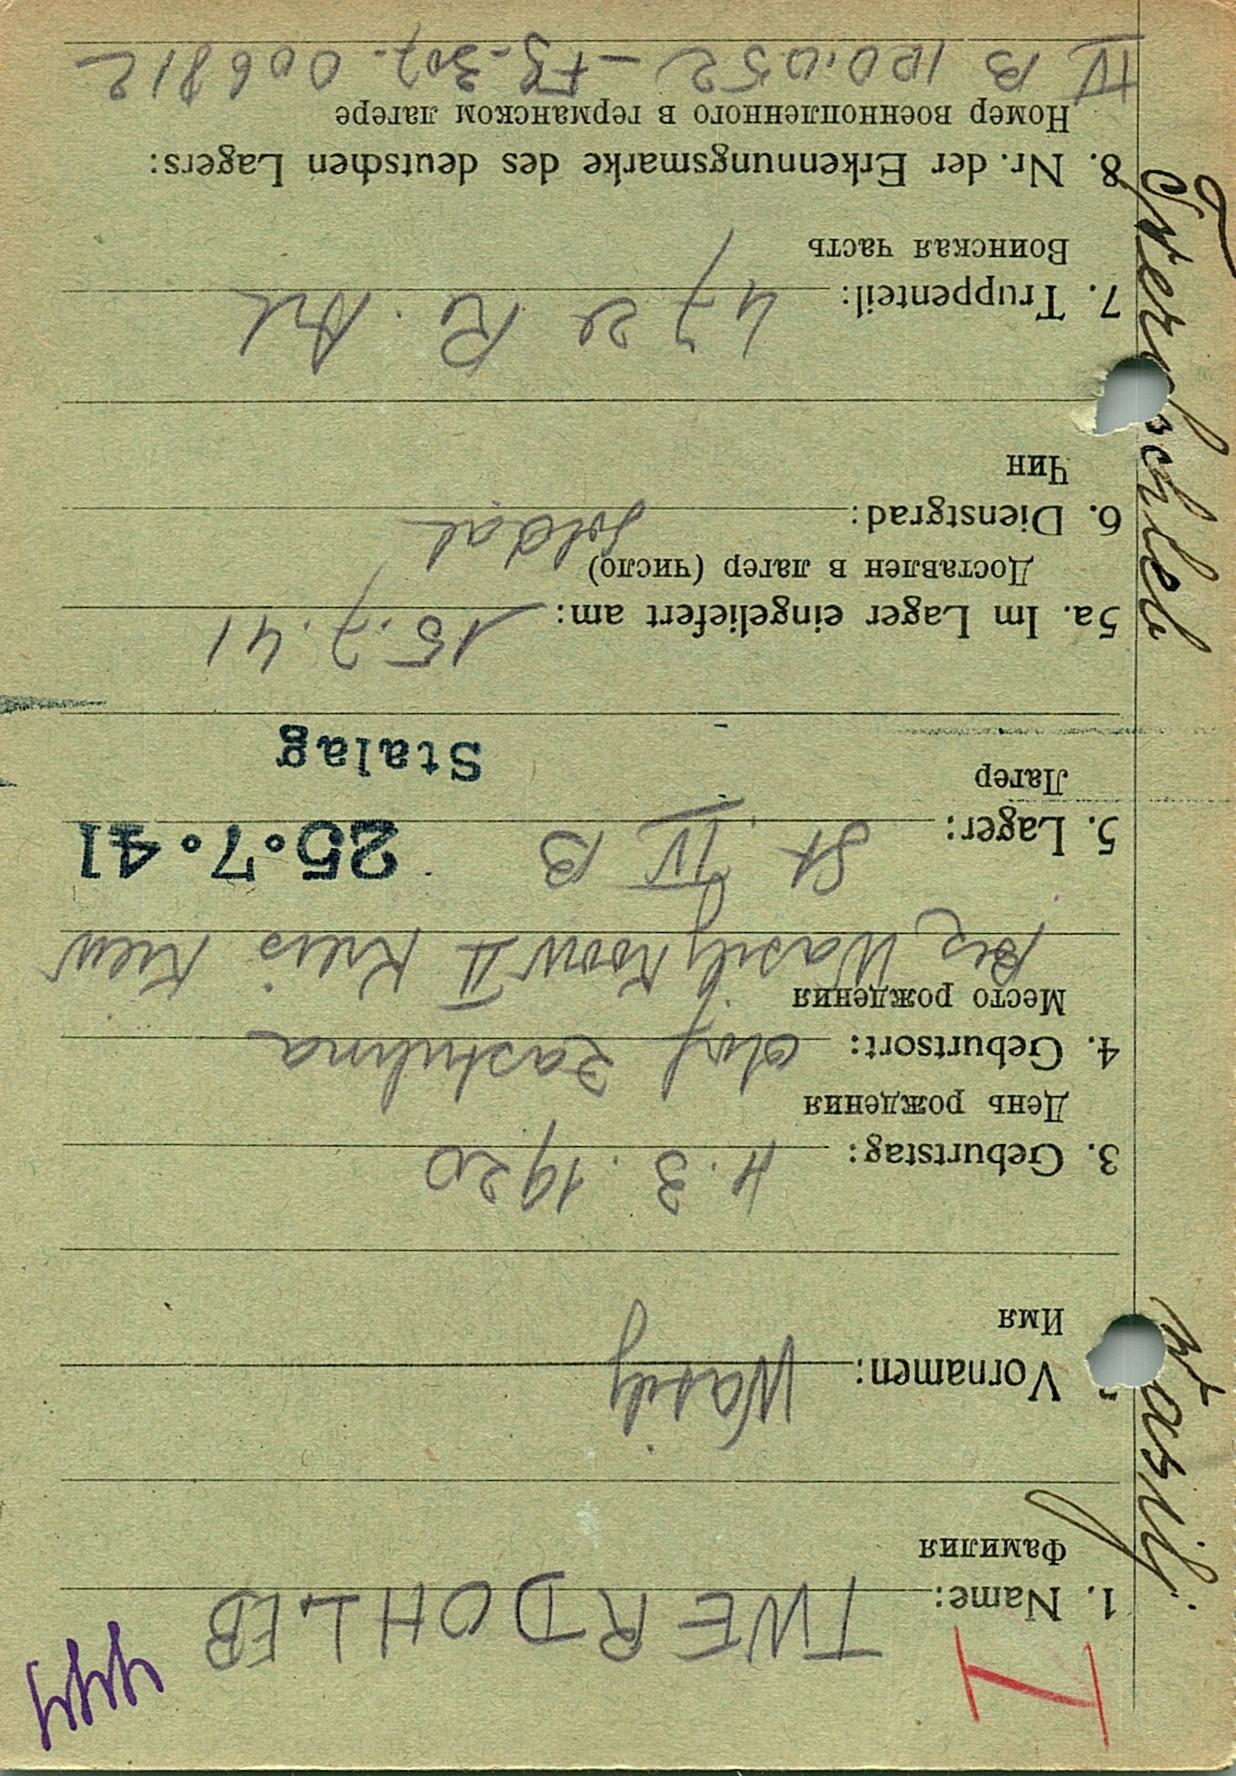 I
444
1. Name: TWERDOHLEB
Фамилия
Vornamen: Wasily
Имя
3. Geburtstag: 4.3.1920
День рождения
4. Geburtsort: Zastuhna
Место рождения
Bez Wasilykow II Kreis Kiew
5. Lager: St. IV B 25.7.41
Лагер
Stalag
5a. Im Lager eingeliefert am: 15.7.41
Доставлен в лагер (число)
6. Dienstgrad: Soldat
Чин
7. Truppenteil: 47 R. Art
Воинская часть
8. Nr. der Erkennungsmarke des deutschen Lagers:
Номер военнопленного в германском лагере
IV B 120.052 – Fg. 307. 006812
Wasilij